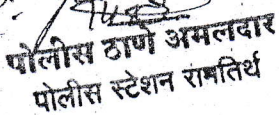 पोलीस ठाणे अमलदार
पोलीस स्टेशन रामतिर्थ